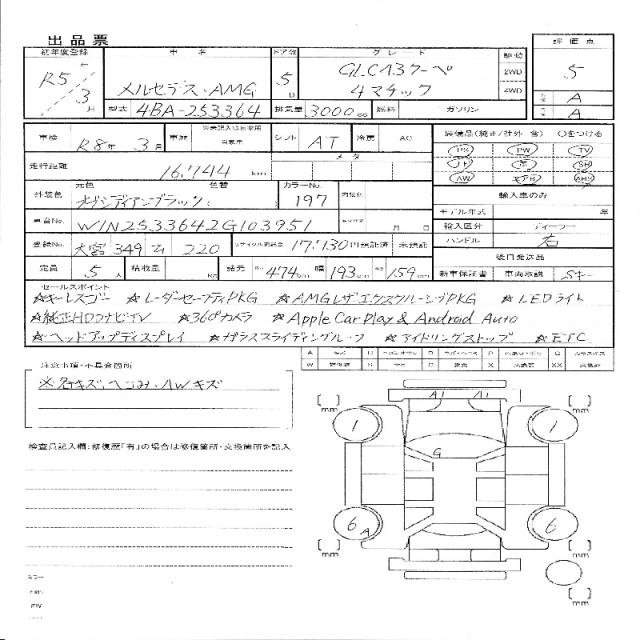 出品票
初年度登録 車名 ドア数 グレード 駆動 評価点
R5年 3月 メルセデス・AMG 5D GLC43クーペ 4マチック 2WD 4WD 5
型式 4BA-253364 排気量 3000cc 燃料 ガソリン A A
車検 R8年 3月 車歴 シフト AT 冷房 AC 装備品(純正/社外 含) ○をつける
PS PW TV
走行距離 16,744km メタ
SR
AW エアB ABS
外装色 元色 オブシディアンブラック 色替 カラーNo. 197 内装色 輸入車のみ
モデル年式 年
車台No. W1N2533642G103951 月 日 輸入区分 ディーラー
登録No. 大宮 349 220 リサイクル預託金 17,130円 預託済 未預託 ハンドル 右
定員 5人 積載量 Kg 諸元 長さ474cm 幅193cm 高さ159cm 後日発送品
新車保証書 車両取説 Sキー
セールスポイント
☆キーレスゴー ☆レーダーセーフティPKG ☆AMGレザーエクスクルーシブPKG ☆LEDライト
☆純正HDDナビTV ☆360°カメラ ☆Apple Car Play & Android Auto
☆ヘッドアップディスプレイ ☆ガラススライディングルーフ ☆アイドリングストップ ☆ETC
注意事項・不具合箇所
※各キズ、ヘコミ・AWキズ
検査員記入欄:修復歴「有」の場合は修復箇所・交換箇所を記入
[ ]mm [ ]mm
A1 A1
1 1
G
6 A 6
[ ]mm [ ]mm
[ ]mm